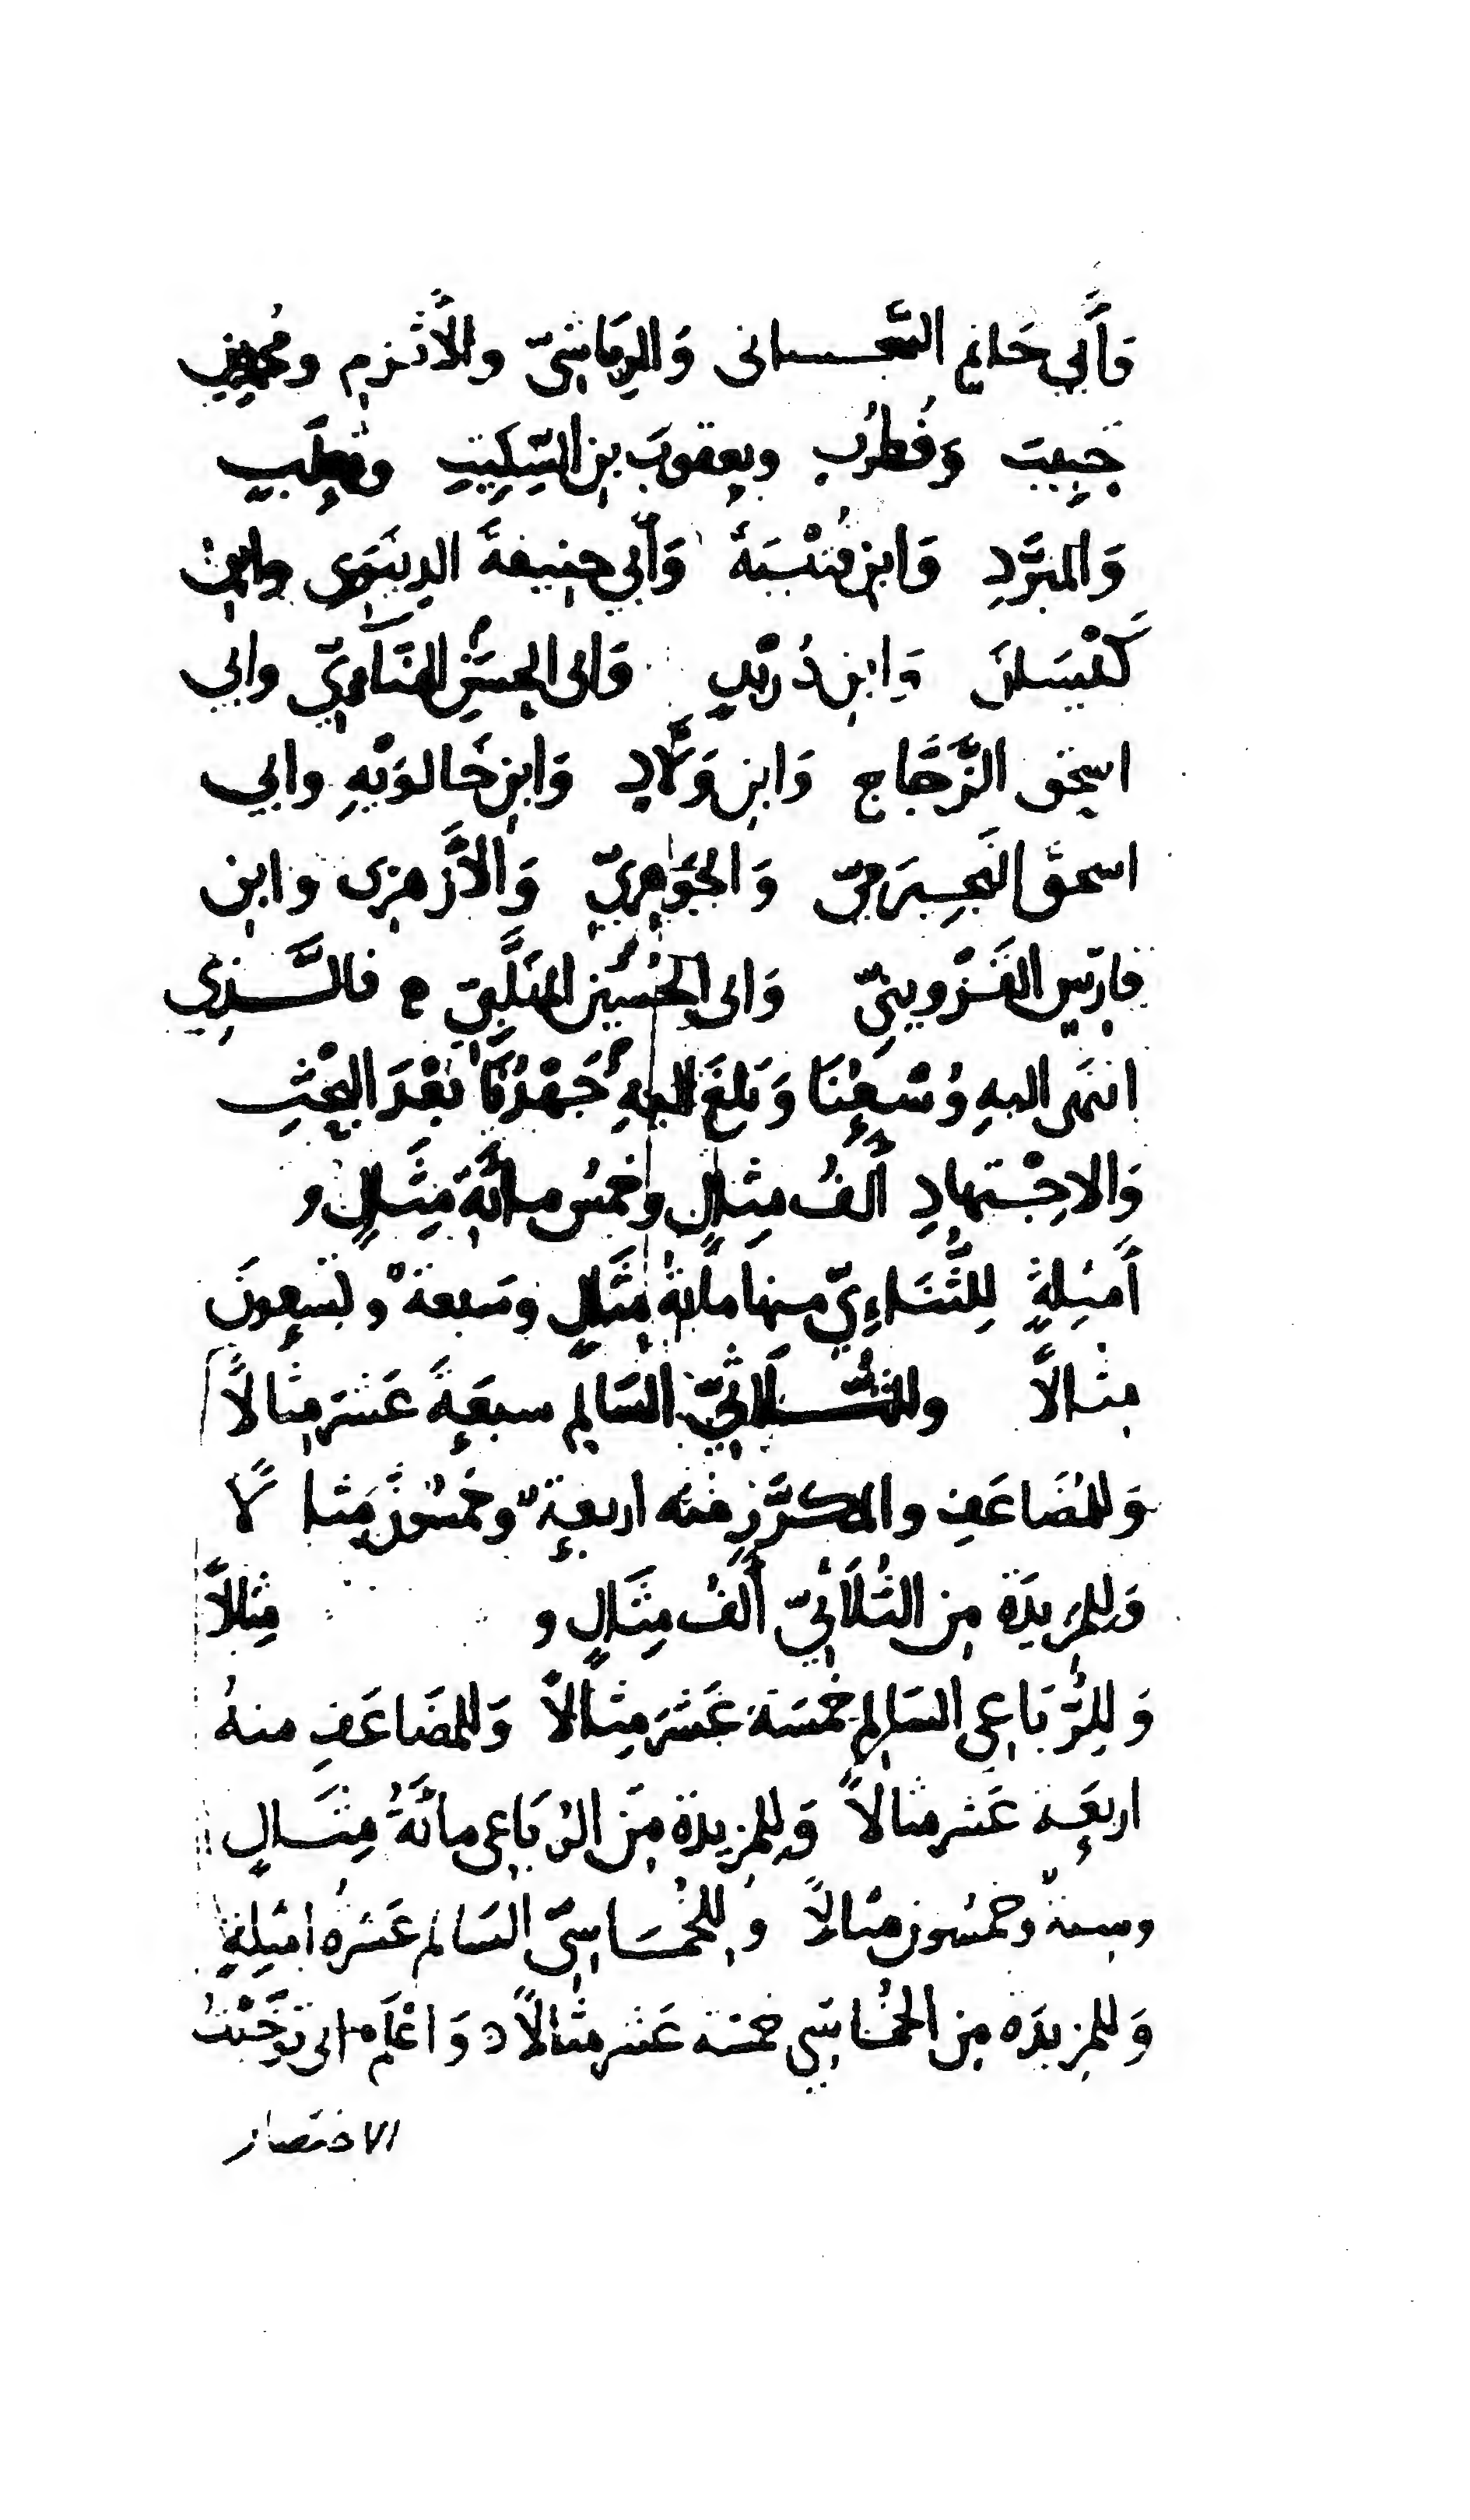 وَأَبي حَاتم السّجستاني وَالرِيَاشِيّ والأَثرم ومُحمدِ بنِ
حَبِيبَ وَقُطرُبٍ ويعقوبَ بنِ السِّكِيتِ وثعلَبٍ
وَالمبَرَّدِ وَابن قُتَيْبَةَ وَأَبي حنِيفةَ الدِينَوَرِى وابن
كَيْسَانَ وَابنِ دُرَيدٍ وَابى الحسَنِ الهُنَاءِىِّ وابي
اسحق الزَّجَّاجِ وَابنِ وَلَّادٍ وَابنِ خَالوَيْهِ وابي
اسحقَ النَجِيرَمِيّ وَالجَوْهرِيّ وَالأَزهرِى وابنِ
فارسٍ القَزْوِينِيّ وَابى الحُسَيْنِ المهَلَّبِيّ ه فالَّذِي
انتهَى اليهِ وُسْعُنَا وَبَلغَ اليهِ جَهْدُنَا بَعْدَ البَحْثِ
وَالاجْتِهادِ أَلفُ مِثالٍ وخمسُ مائَةِ مِثَالٍ و
أَمثِلةٍ لِلثُّنَاءِيّ منها مائةُ مِثَالٍ وسَبعة وتسعونَ
مِثالاً وللثُّلَاثيِّ السَالِم سبعَةَ عَشَرَ مِثالاً
وَللمُضَاعَفِ والمكرَّرِ منه اربعة وخمسُونَ مِثالًا
وَللمزِيدَة مِن الثُلَاثِيّ أَلفُ مِثَالٍ و مِثالاً
وَلِلرُّبَاعى السَالِم خمسَةَ عَشَرَ مِثالاً وَللمضَاعَفِ منهُ
اربعَة عَشر مثالاً وَللمزِيدة مِنَ الرُبَاعى مائَةُ مِثَالٍ
وستة وخمسُون مثالاً وَلِلخُمَاسِيّ السَالم عَشرَة امثِلةٍ
وَللمزِيدَه مِن الخُمَاسِي خمسَة عَشر مثالاً ه وَاعْلَم انى توَخَّيتُ
الاختصار